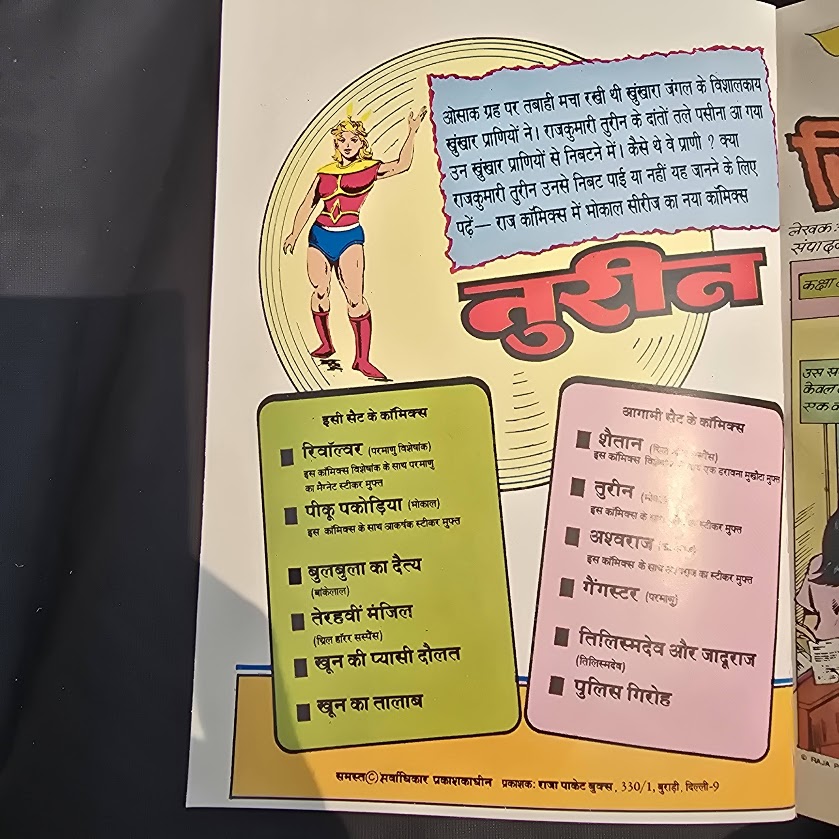 ओसाक ग्रह पर तबाही मचा रखी थी खुंखारा जंगल के विशालकाय
खुंखार प्राणियों ने। राजकुमारी तुरीन के दांतों तले पसीना आ गया
उन खुंखार प्राणियों से निबटने में। कैसे थे वे प्राणी ? क्या
राजकुमारी तुरीन उनसे निबट पाई या नहीं यह जानने के लिए
पढ़ें— राज कॉमिक्स में भोकाल सीरीज का नया कॉमिक्स
तुरीन
इसी सैट के कॉमिक्स
रिवॉल्वर (परमाणु विशेषांक)
इस कॉमिक्स विशेषांक के साथ परमाणु
का मैग्नेट स्टीकर मुफ्त
पीकू पकोड़िया (भोकाल)
इस कॉमिक्स के साथ आकर्षक स्टीकर मुफ्त
बुलबुला का दैत्य
(बांकेलाल)
तेरहवीं मंजिल
(थ्रिल हॉरर सस्पेंस)
खून की प्यासी दौलत
खून का तालाब
आगामी सैट के कॉमिक्स
शैतान
इस कॉमिक्स साथ एक डरावना मुखौटा मुफ्त
तुरीन
इस कॉमिक्स के साथ स्टीकर मुफ्त
अश्वराज
इस कॉमिक्स के साथ अश्वराज का स्टीकर मुफ्त
गैंगस्टर (परमाणु)
तिलिस्मदेव और जादूराज
(तिलिस्मदेव)
पुलिस गिरोह
समस्त © सर्वाधिकार प्रकाशकाधीन प्रकाशक: राजा पाकेट बुक्स, 330/1, बुराड़ी, दिल्ली-9
लेखक:
संपादक
कक्षा
उस स
केवल
एक क
© RAJA P